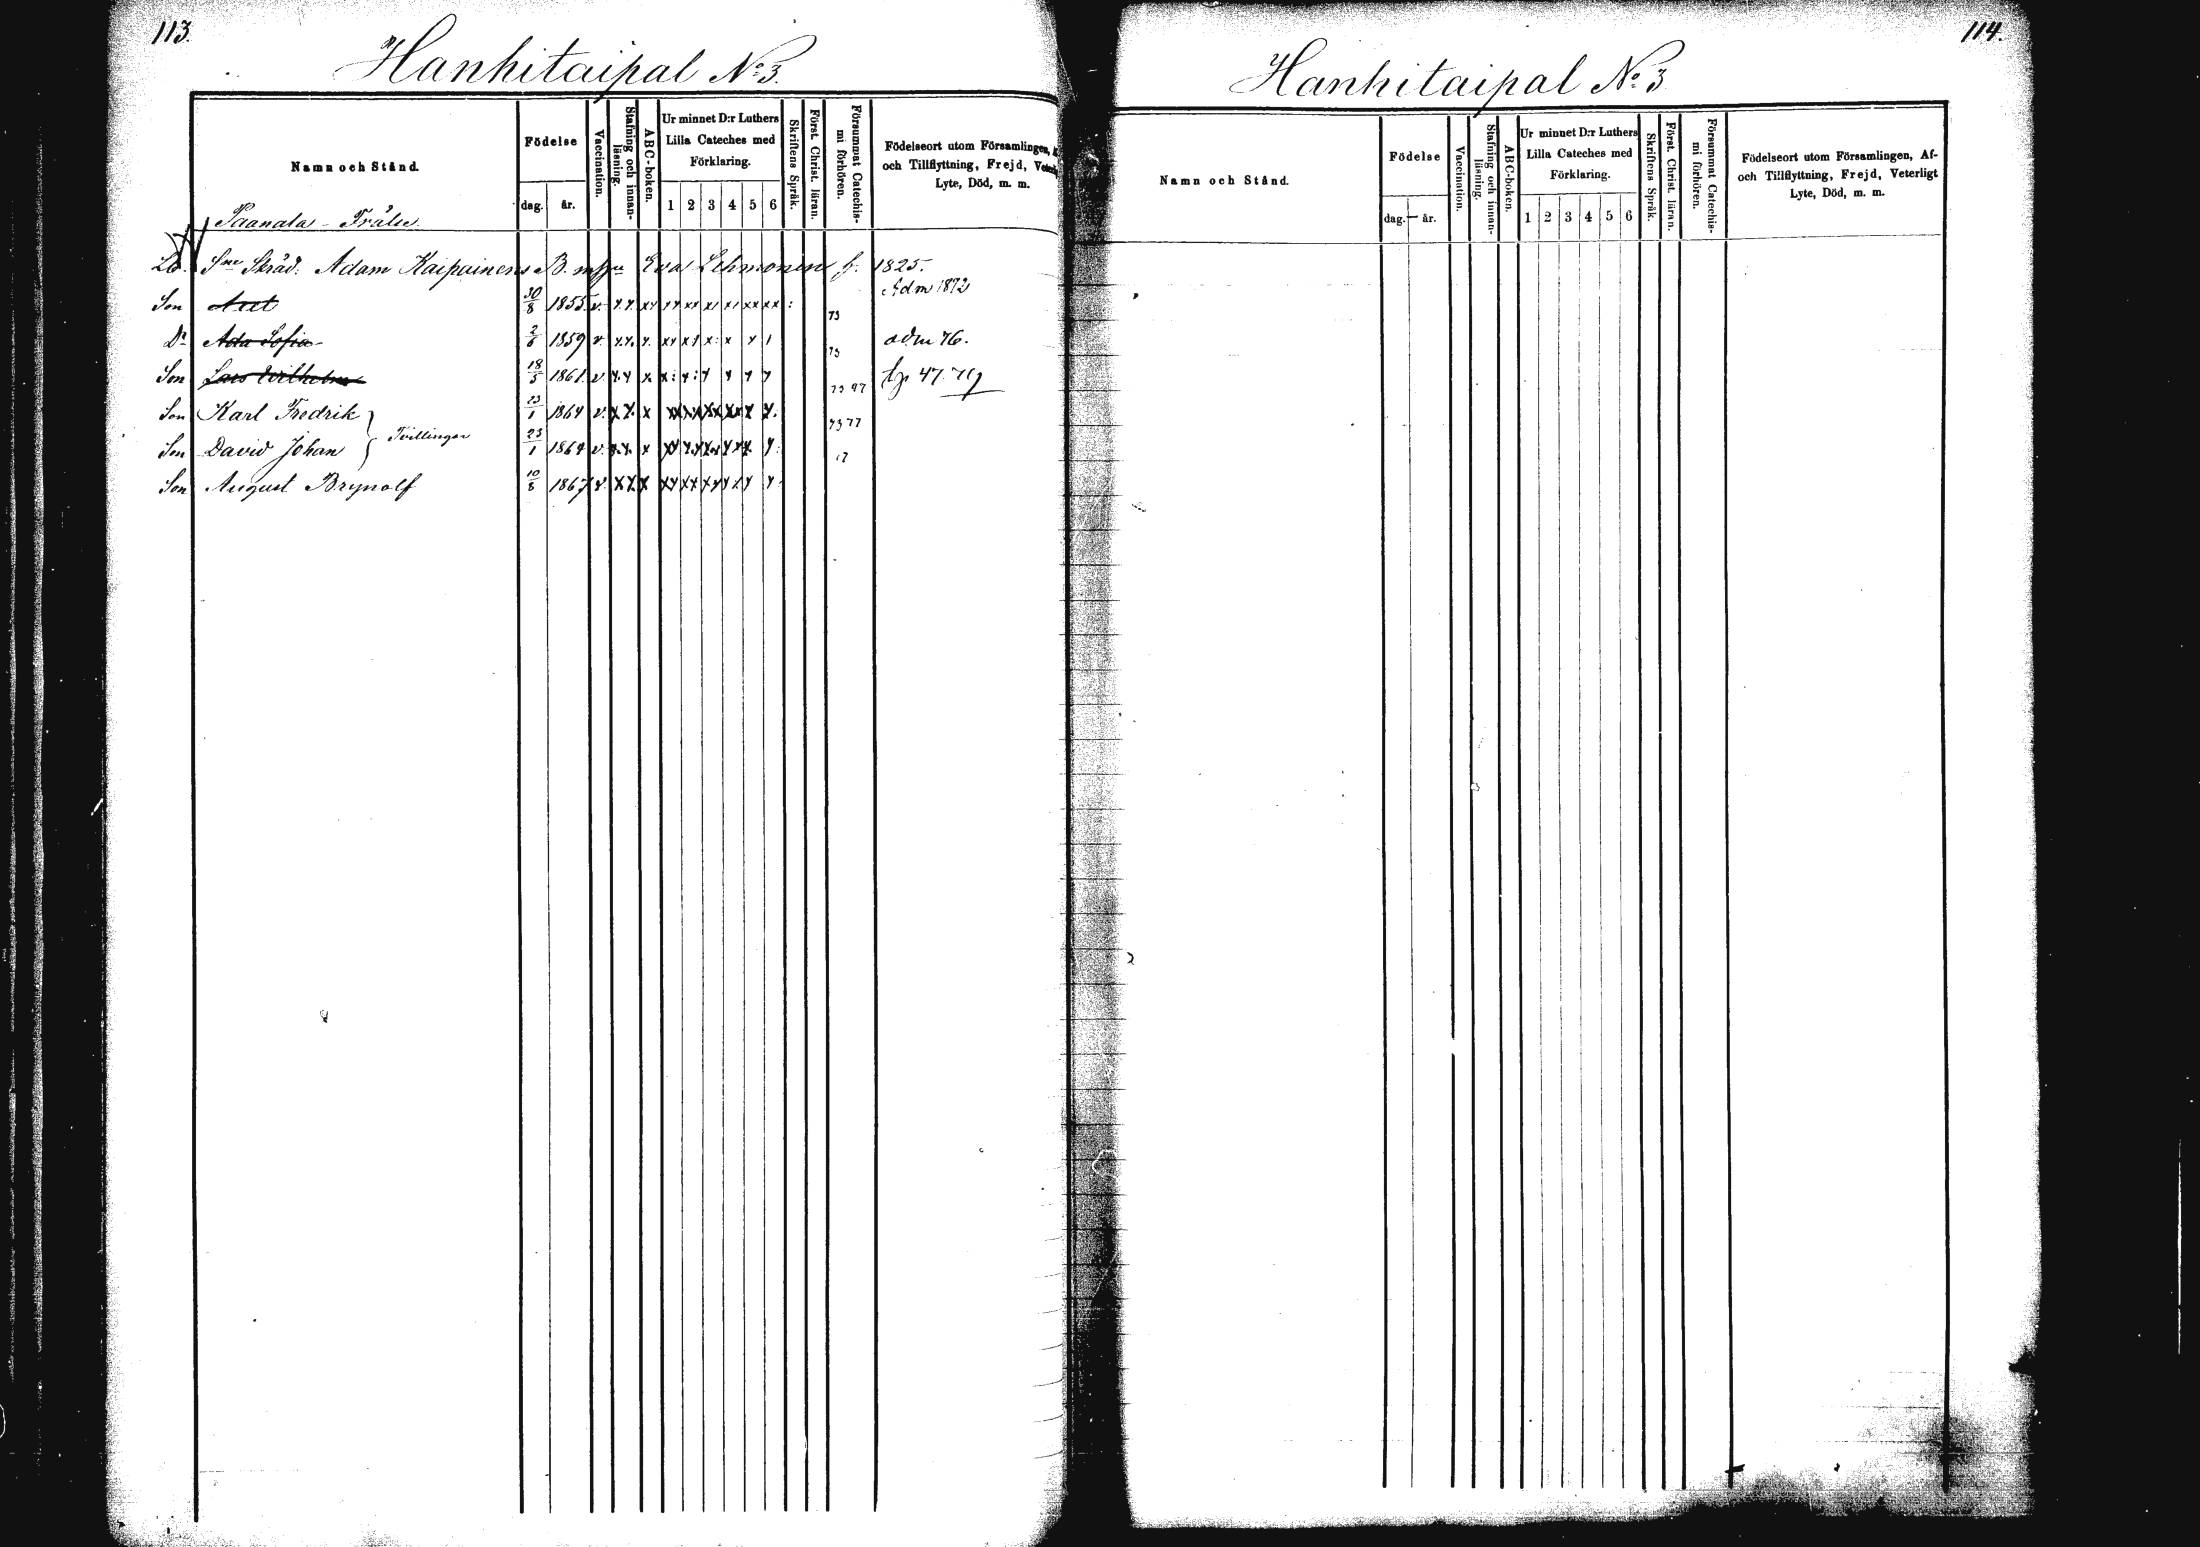 113.
Hanhitaipal No 3.
Namn och Stånd.
Födelse
dag. år.
Vaccination.
Stafning och innanläsning.
ABC-boken.
Ur minnet D:r Luthers
Lilla Cateches med
Förklaring.
1 2 3 4 5 6
Skriftens Språk.
Först. Christ. läran.
Försummat Catechismi förhören.
Födelseort utom Församlingen,
och Tillflyttning, Frejd,
Lyte, Död, m. m.
Paanala - Frälse
Skräd. Adam Kaipainens B. Eva Lehmonen f. 1825.
Son Axel 30/8 1855 v. 73 Adm 1872
Dr Ada Sofia 2/6 1859 v. 73 adm 76.
Son Lars Wilhelm 18/5 1861 v.
Son Karl Fredrik 23/1 1864 v. 73 77
Tvillingar
Son David Johan 23/1 1864 v.
Son August Brynolf 10/8 1867 v.
114.
Hanhitaipal No 3
Namn och Stånd.
Födelse
dag. år.
Vaccination.
Stafning och innanläsning.
ABC-boken.
Ur minnet D:r Luthers
Lilla Cateches med
Förklaring.
1 2 3 4 5 6
Skriftens Språk.
Först. Christ. läran.
Försummat Catechismi förhören.
Födelseort utom Församlingen, Af-
och Tillflyttning, Frejd, Veterligt
Lyte, Död, m. m.